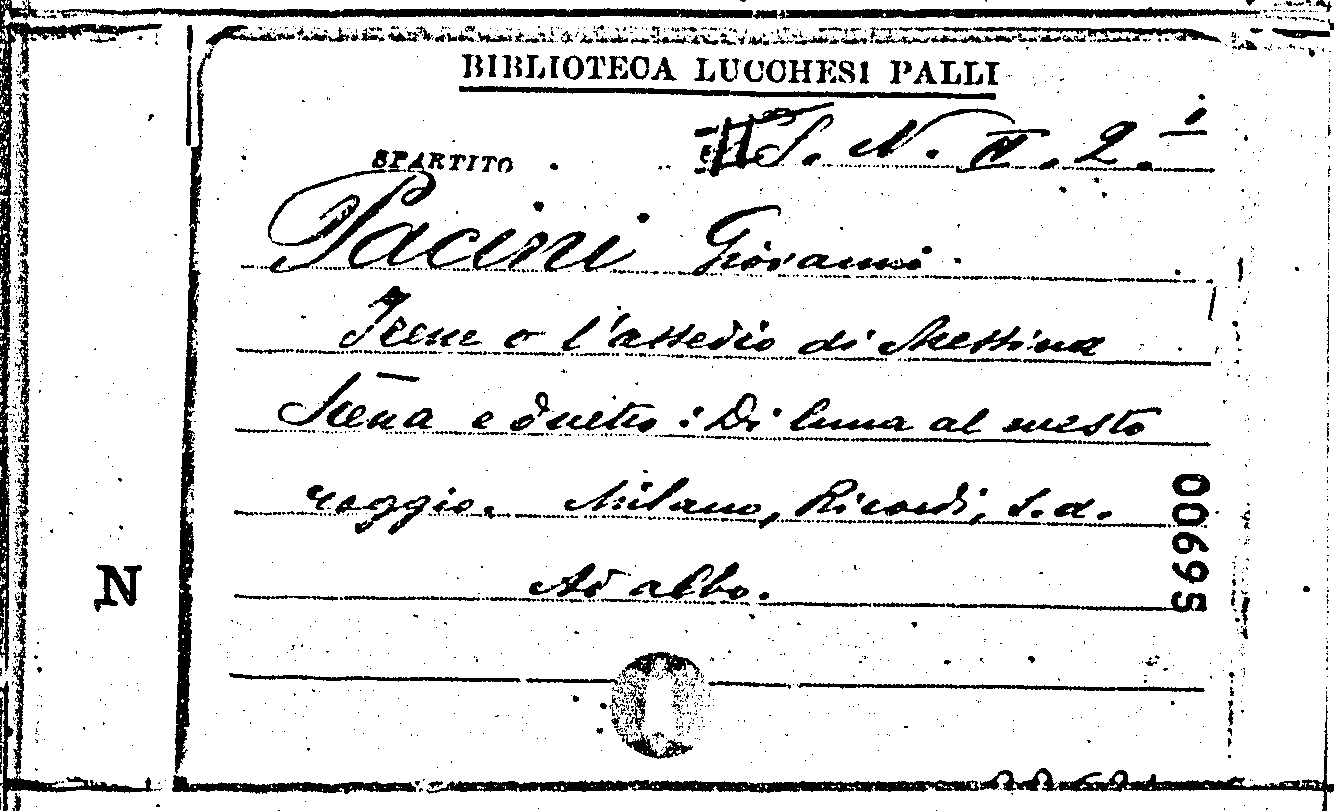 BIBLIOTECA LUCCHESI PALLI
SPARTITO
S. N. II. 2.
Pacini Giovanni
Irene o l'assedio di Messina
Scena e duetto: Di luna al mesto
raggio. Milano, Ricordi, s.d.
Ad albo.
N
00995